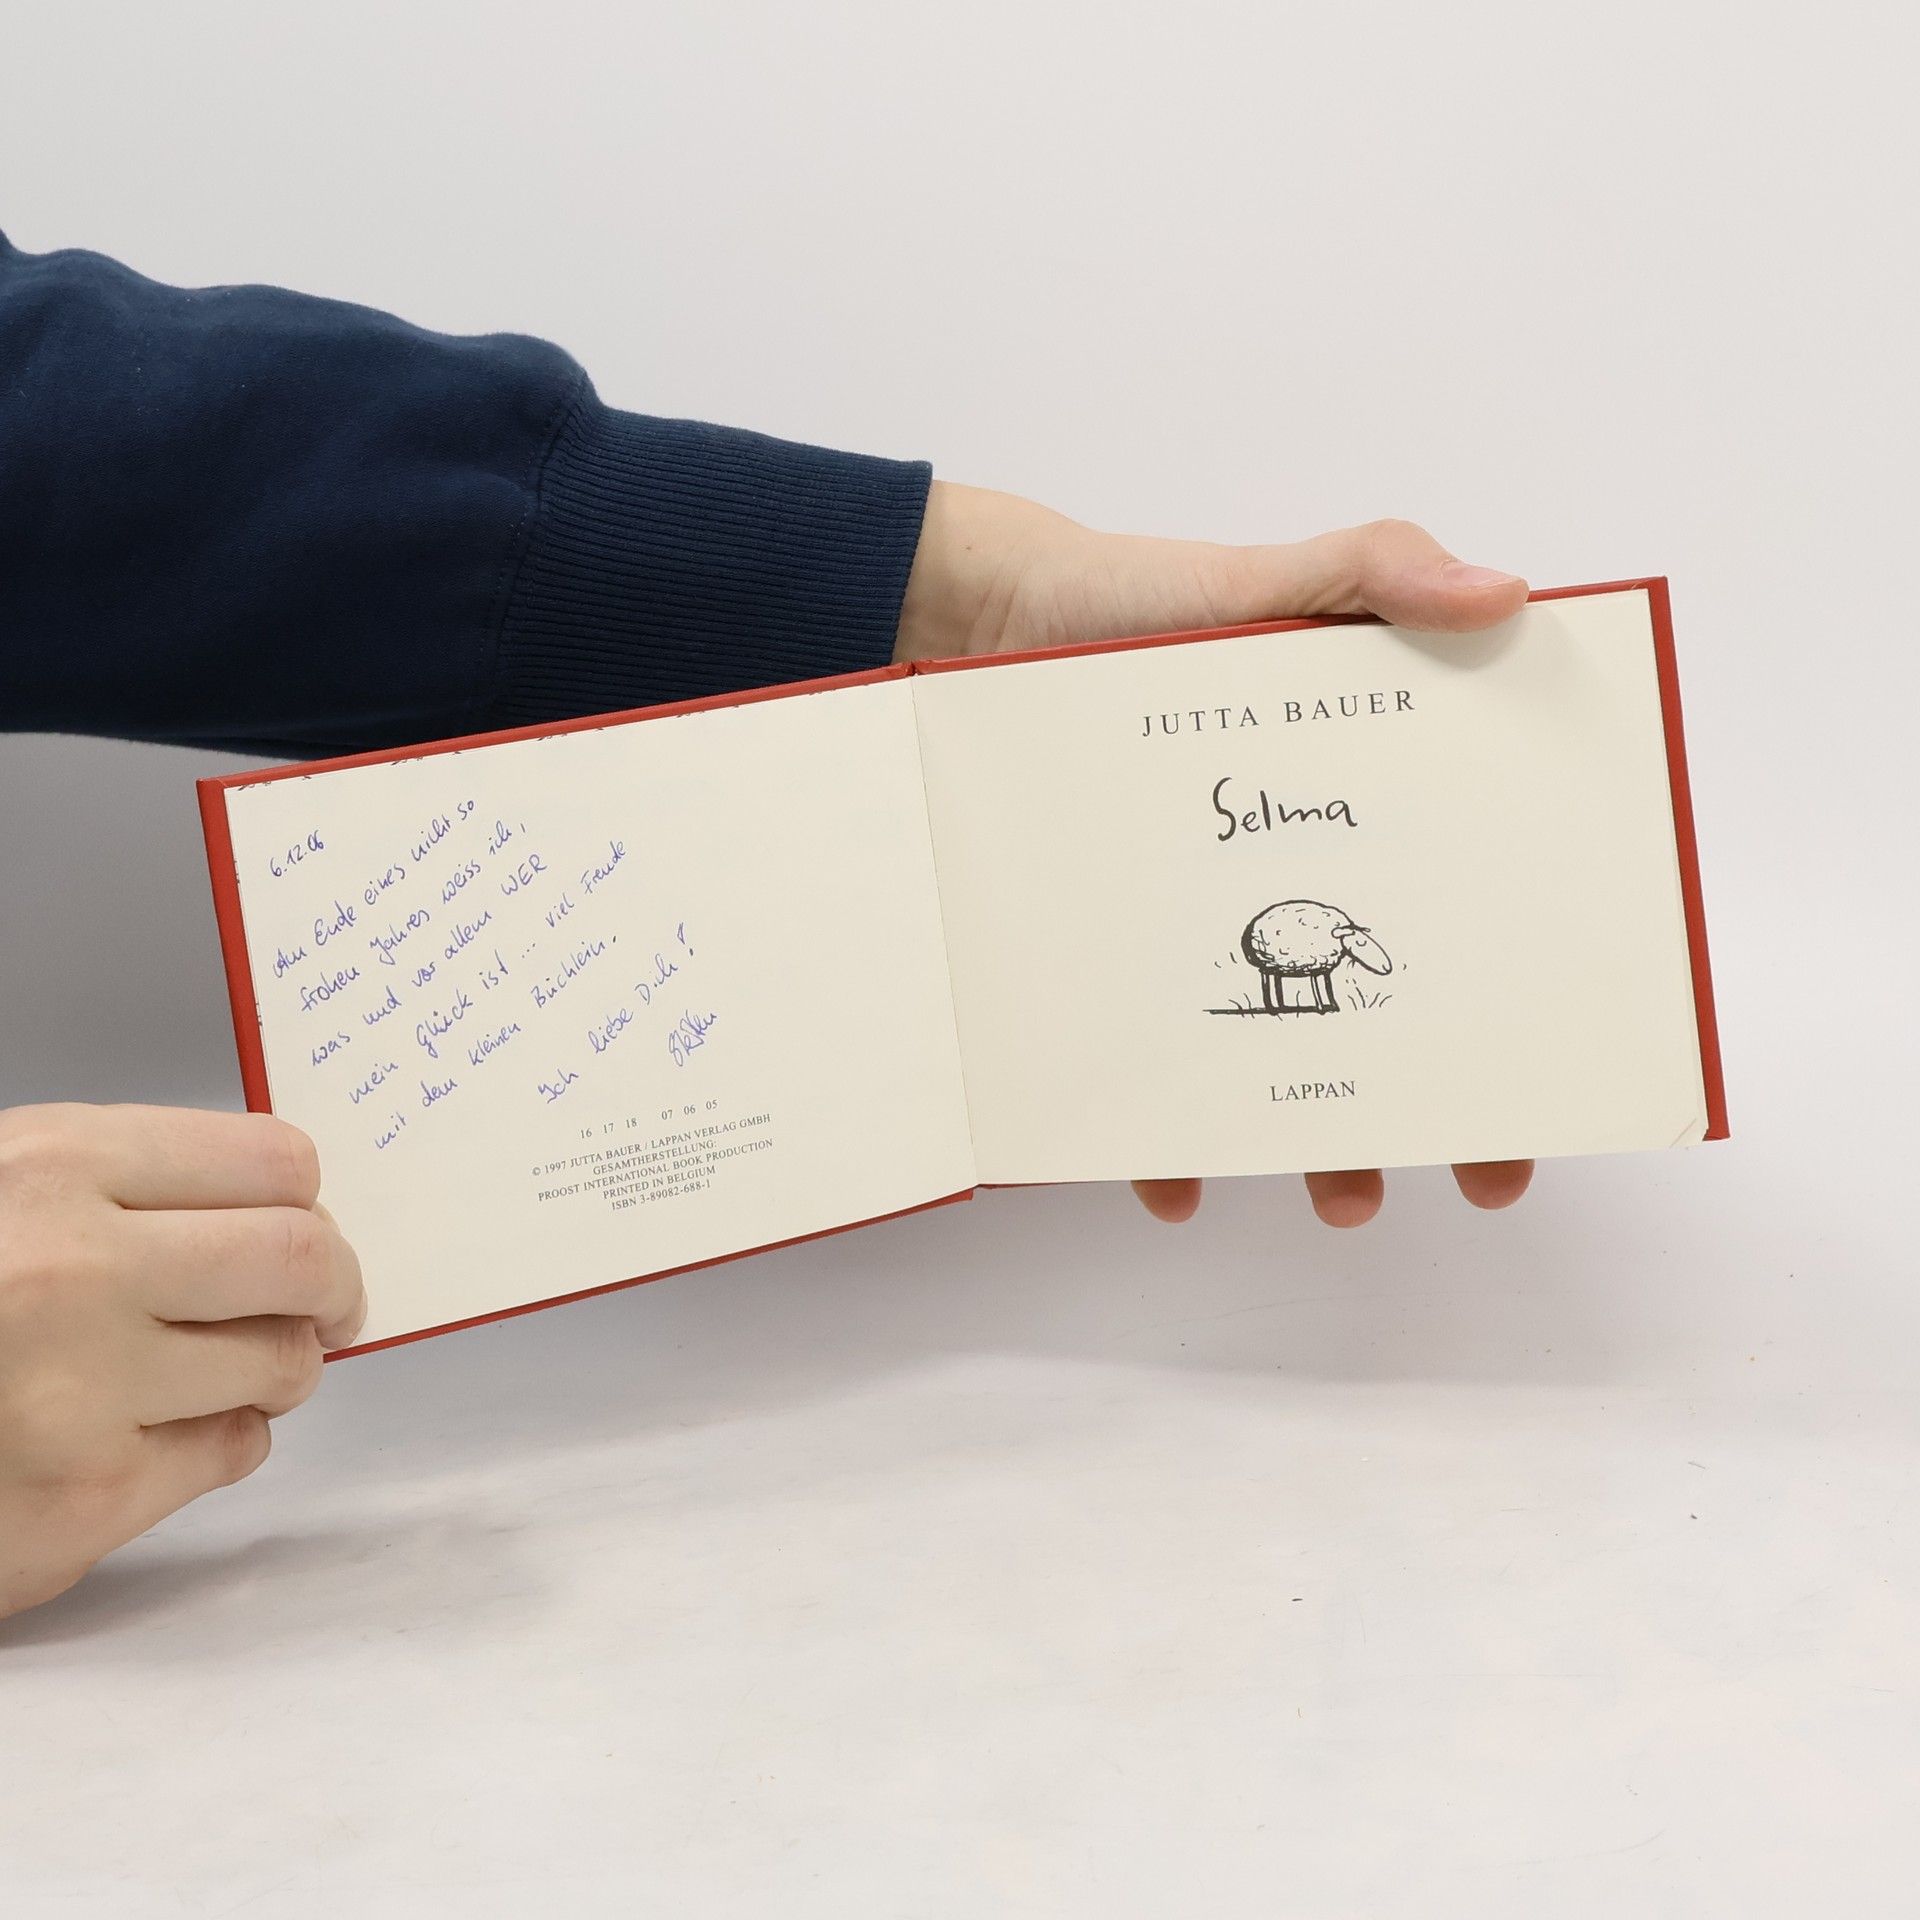 6.12.06
Am Ende eines nicht so
frohen Jahres weiss ich,
was und vor allem WER
mein Glück ist ... viel Freude
mit dem kleinen Büchlein.
Ich liebe Dich!
16 17 18 07 06 05
© 1997 JUTTA BAUER / LAPPAN VERLAG GMBH
GESAMTHERSTELLUNG:
PROOST INTERNATIONAL BOOK PRODUCTION
PRINTED IN BELGIUM
ISBN 3-89082-688-1
JUTTA BAUER
Selma
LAPPAN